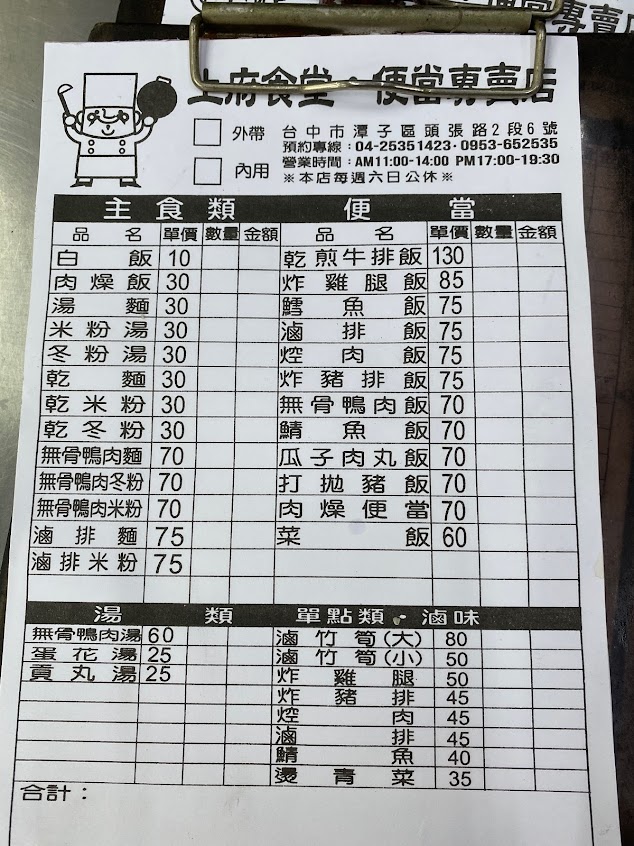 便當專賣店
上府食堂・便當專賣店
外帶 台中市潭子區頭張路2段6號
預約專線：04-25351423・0953-652535
內用 營業時間：AM11:00-14:00 PM17:00-19:30
※本店每週六日公休※
主食類 便當
品名 單價 數量 金額 品名 單價 數量 金額
白飯 10 乾煎牛排飯 130
肉燥飯 30 炸雞腿飯 85
湯麵 30 鱈魚飯 75
米粉湯 30 滷排飯 75
冬粉湯 30 焢肉飯 75
乾麵 30 炸豬排飯 75
乾米粉 30 無骨鴨肉飯 70
乾冬粉 30 鯖魚飯 70
無骨鴨肉麵 70 瓜子肉丸飯 70
無骨鴨肉冬粉 70 打拋豬飯 70
無骨鴨肉米粉 70 肉燥便當 70
滷排麵 75 菜飯 60
滷排米粉 75
湯類 單點類・滷味
無骨鴨肉湯 60 滷竹筍(大) 80
蛋花湯 25 滷竹筍(小) 50
貢丸湯 25 炸雞腿 50
炸豬排 45
焢肉 45
滷排 45
鯖魚 40
燙青菜 35
合計：